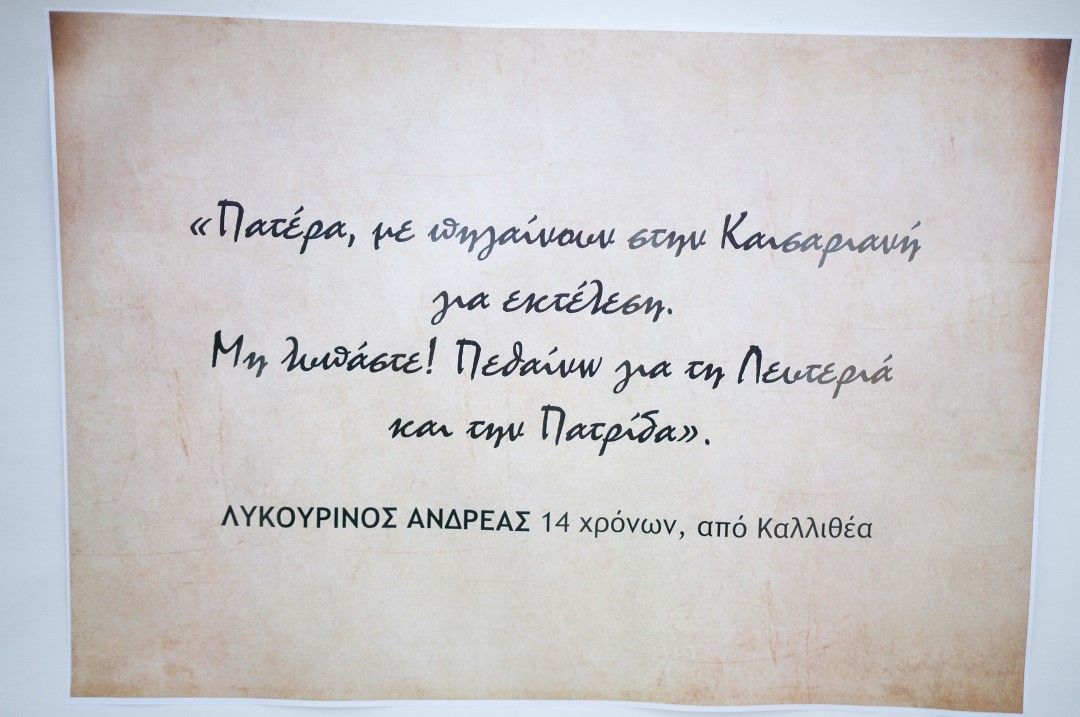 «Πατέρα, με πηγαίνουν στην Καισαριανή
για εκτέλεση.
Μη λυπάστε! Πεθαίνω για τη Λευτεριά
και την Πατρίδα».
ΛΥΚΟΥΡΙΝΟΣ ΑΝΔΡΕΑΣ 14 χρόνων, από Καλλιθέα